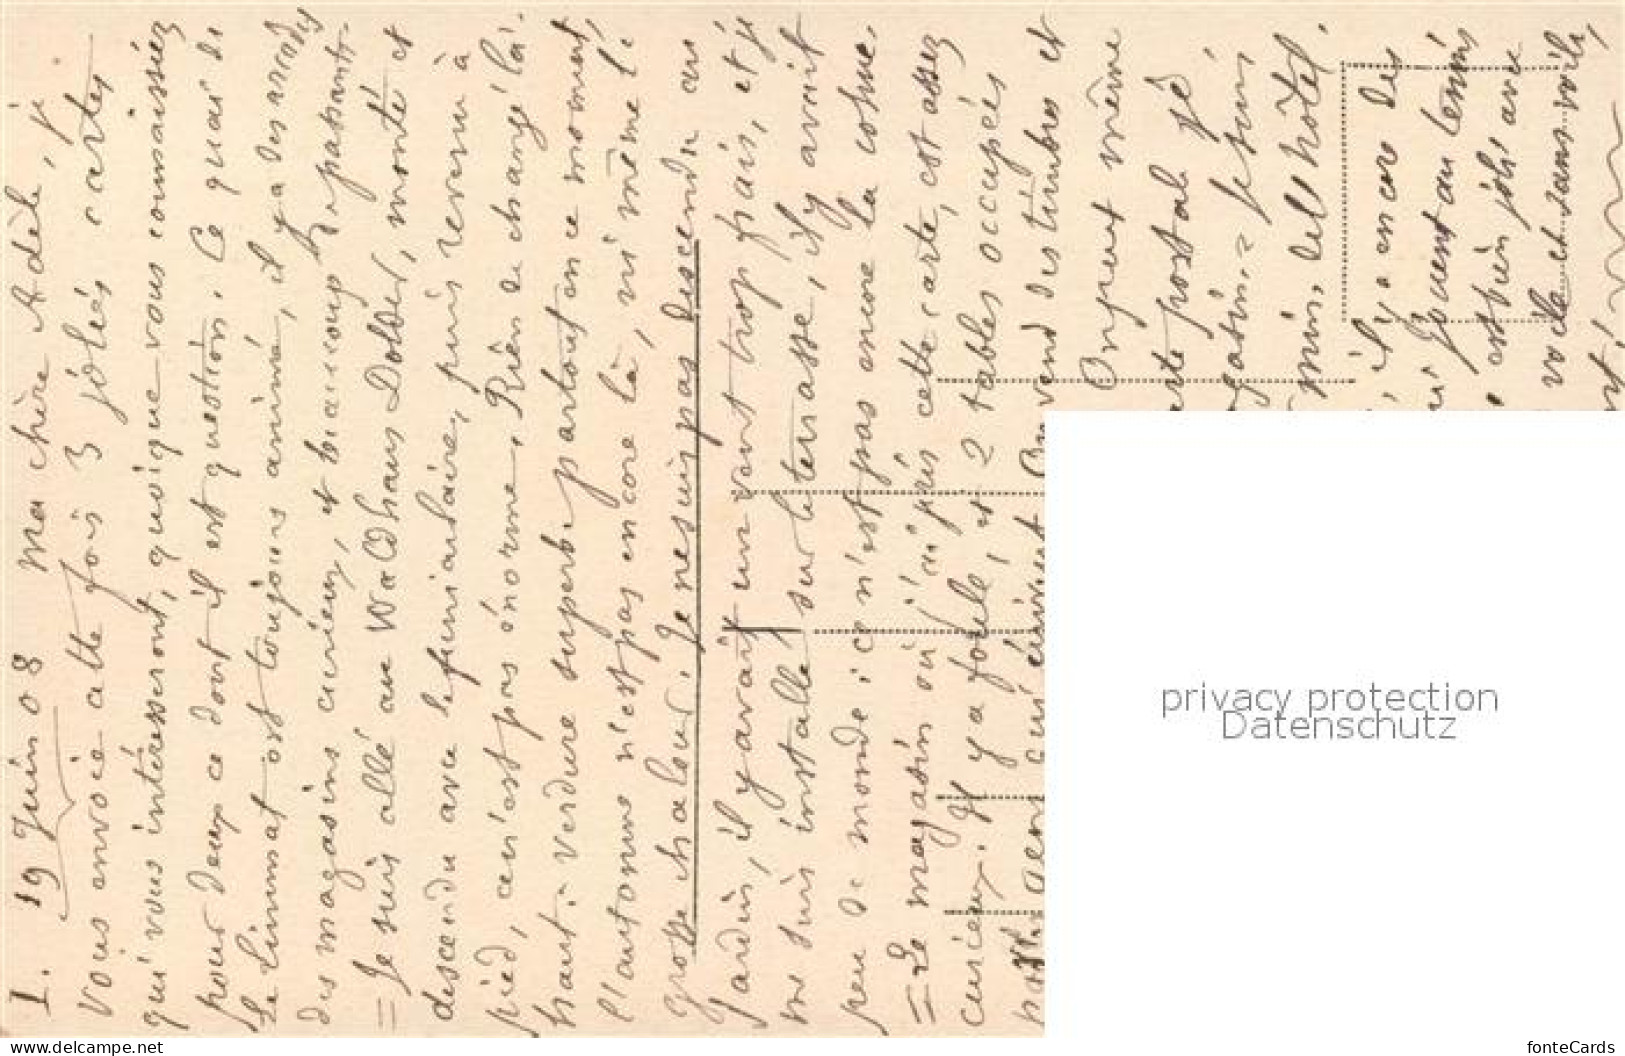 I. 19 Juin 08 Ma chère Adèle, je
vous envoie cette fois 3 jolies cartes
qui vous intéresseront, quoique vous connaissiez
pour deux ce dont il est question. Le quai de
le Limmat est toujours animé, il y a des
des magasins curieux, et beaucoup de passants.
= Je suis allé au Waldhaus Dolder, monté et
descendu avec le funiculaire, puis revenu à
pied, ce n'est pas énorme. Rien de changé là
haut. verdure superbe partout en ce moment,
l'automne n'est pas encore là, ni même l.
grosse chaleur. Je ne suis pas descendu au
jardin, il y avait un vent trop frais, et je
me suis installé sur la terrasse, il y avait
peu de monde: ce n'est pas encore la cohue.
= Le magasin où j'ai pris cette carte, est assez
curieux. Il y a foule, et 2 tables occupées
vend des timbres et
On peut même
carte postale
min. de l'hôtel.
il y a encore des
jouent au tennis
est bien joli avec
voile et sans voile,
privacy protection
Datenschutz
www.delcampe.net
fonteCards